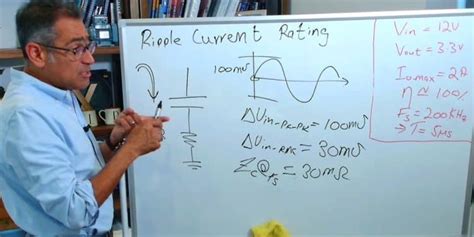 Ripple Current Rating
100mV
ΔVin-PK-PK = 100mV
ΔVin-RMS = 30mV
Zc@Fs = 30mΩ
Vin = 12V
Vout = 3.3V
Iomax = 2A
η ≈ 100%
Fs = 200KHz
→ T = 5μs